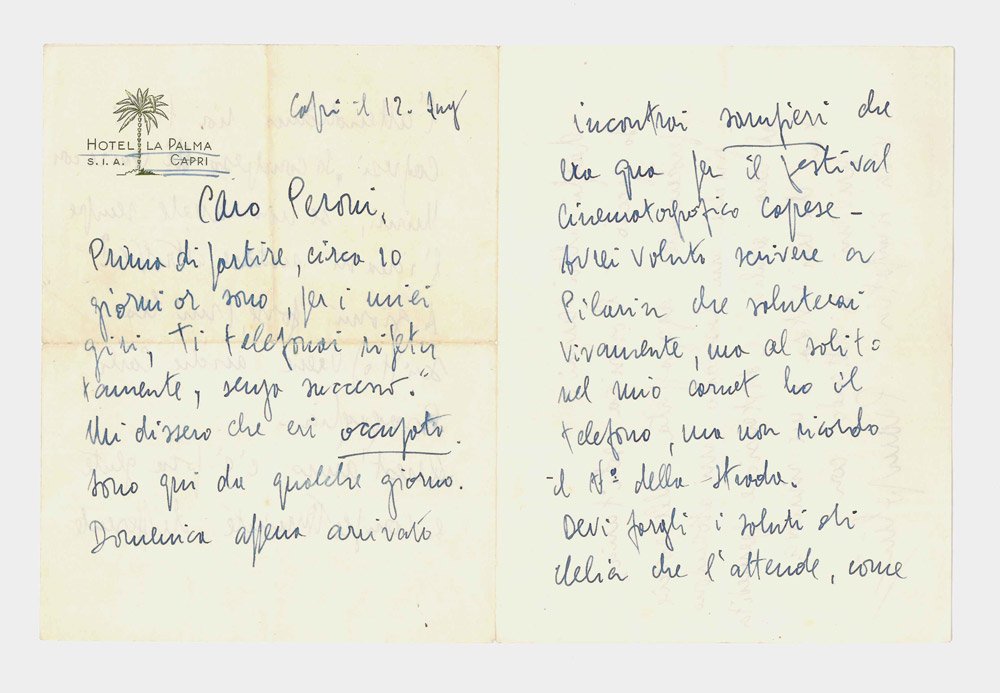 HOTEL LA PALMA
S.I.A. CAPRI
Capri il 12.
Caro Peroni,
Prima di partire, circa 10
giorni or sono, per i miei
giri, Ti telefonai ripetu
tamente, senza successo."
Mi dissero che eri occupato.
Sono qui da qualche giorno.
Domenica appena arrivato
incontrai Sampieri che
era qua per il festival
Cinematografico caprese -
Avrei voluto scrivere a
Pilarin che saluterai
vivamente, ma al solito
nel mio carnet ho il
telefono, ma non ricordo
il N° della strada.
Devi fargli i saluti di
Clelia che l'attende, come